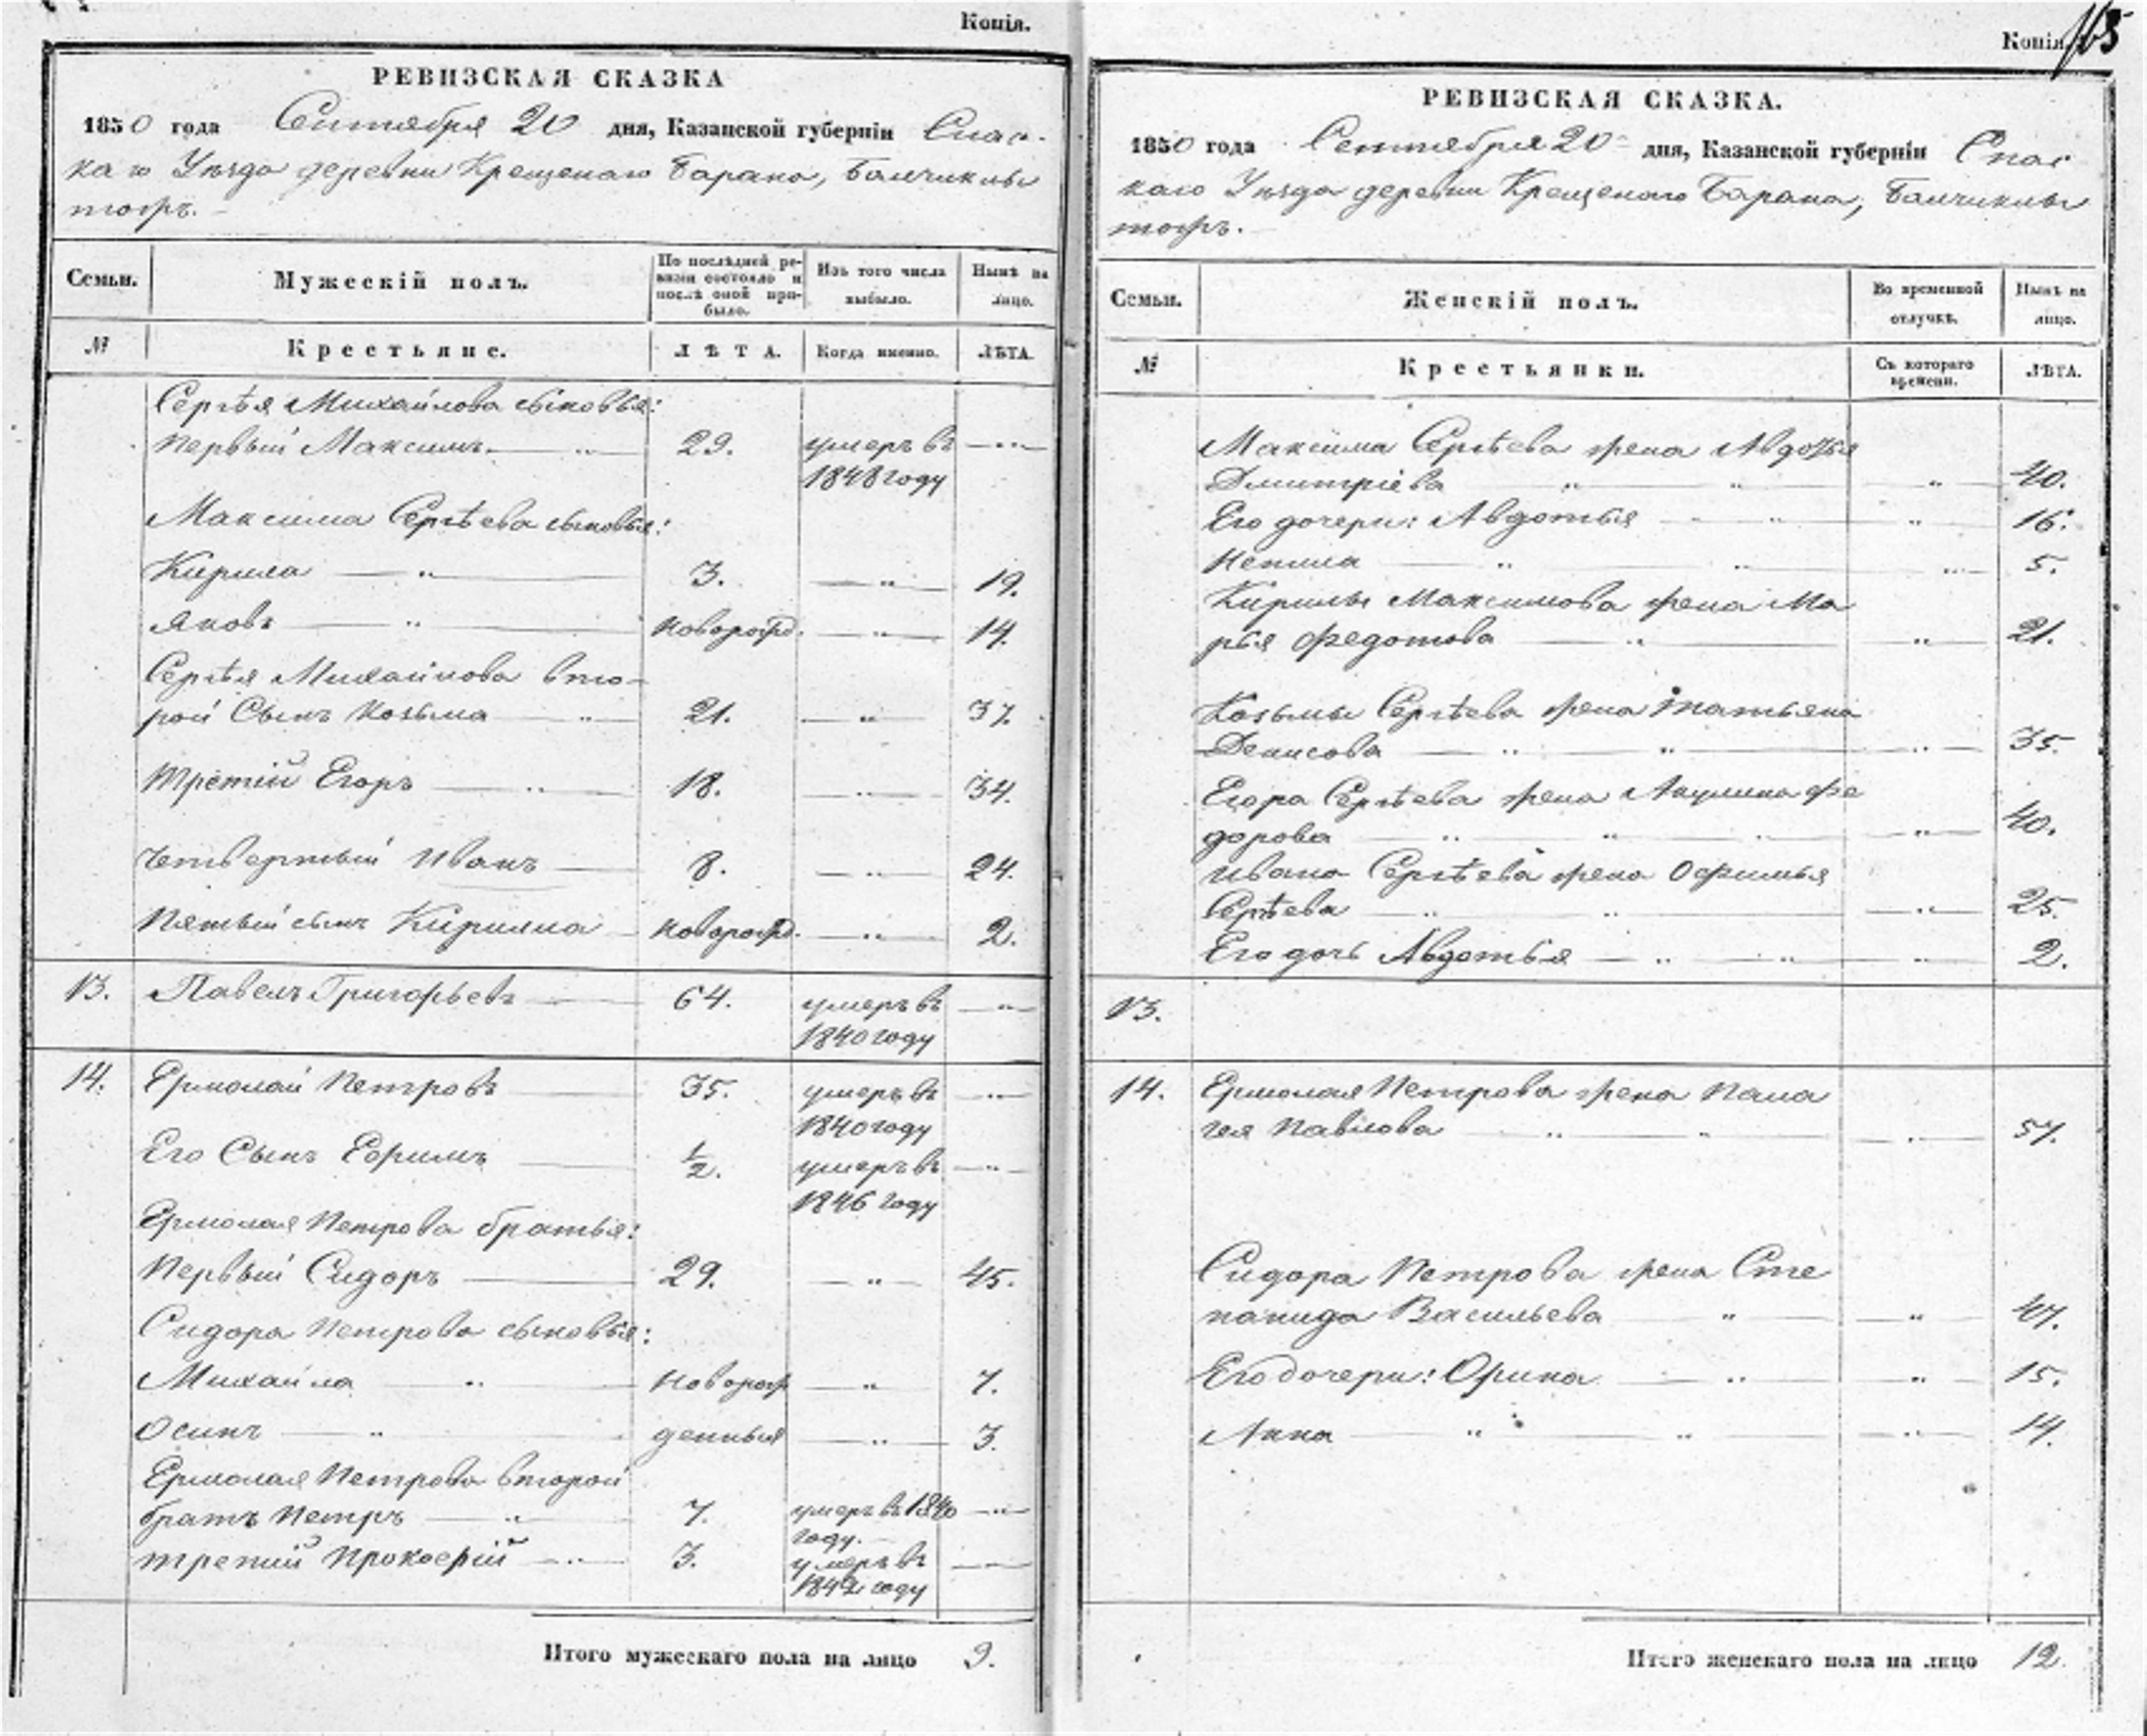 Копія.
РЕВИЗСКАЯ СКАЗКА
1850 года Сентября 20 дня, Казанской губерніи Спас-
каго Уѣзда деревни Крещенаго Барана,
тожъ.
Семьи.
Мужескій полъ.
По послѣдней ре-
визіи состояло и
послѣ оной при-
было.
Изъ того числа
выбыло.
Нынѣ на
лицо.
№
Крестьяне.
ЛѢТА.
Когда именно.
ЛѢТА.
Сергѣя Михайлова сыновья:
Первый Максимъ 29. умеръ въ
1848 году
Максима Сергѣева сыновья:
Кирила 3. 19.
Яковъ новорожд. 14.
Сергѣя Михайлова вто-
рой Сынъ Козьма 21. 37.
Третій Егоръ 18. 34.
Четвертый Иванъ 8. 24.
Пятый сынъ новорожд. 2.
13. Павелъ Григорьевъ 64. умеръ въ
1840 году
14. Ермолай Петровъ 35. умеръ въ
1840 году
Его Сынъ Ефимъ ½. умеръ въ
1846 году
Ермолая Петрова братья:
Первый Сидоръ 29. 45.
Сидора Петрова сыновья:
Михайла новорож 7.
Осипъ денныя 3.
Ермолая Петрова второй
братъ Петръ 7. умеръ въ 1840
году.
третий Прокофій 3. умеръ въ
1842 году
Итого мужескаго пола на лицо 9.
Копія. 165
РЕВИЗСКАЯ СКАЗКА.
1850 года Сентября 20 дня, Казанской губерніи Спас
каго Уѣзда деревни Крещенаго Барана,
тожъ.
Семьи.
Женскій полъ.
Во временной
отлучкѣ.
Нынѣ на
лицо.
№
Крестьянки.
Съ котораго
времени.
ЛѢТА.
Максима Сергѣева жена Авдотья
Дмитріева 40.
Его дочери: Авдотья 16.
5.
Кирилы Максимова жена Ма
рья Федотова 21.
Козьмы Сергѣева жена Татьяна
Денисова 35.
Егора Сергѣева жена Акулина Фе
дорова 40.
Ивана Сергѣева жена Офимья
Сергѣева 25.
Его дочь Авдотья 2.
13.
14. Ермолая Петрова жена Пела
гея Павлова 57.
Сидора Петрова жена Сте
панида Васильева 47.
Его дочери: Орина 15.
Анна 14.
Итого женскаго пола на лицо 12.